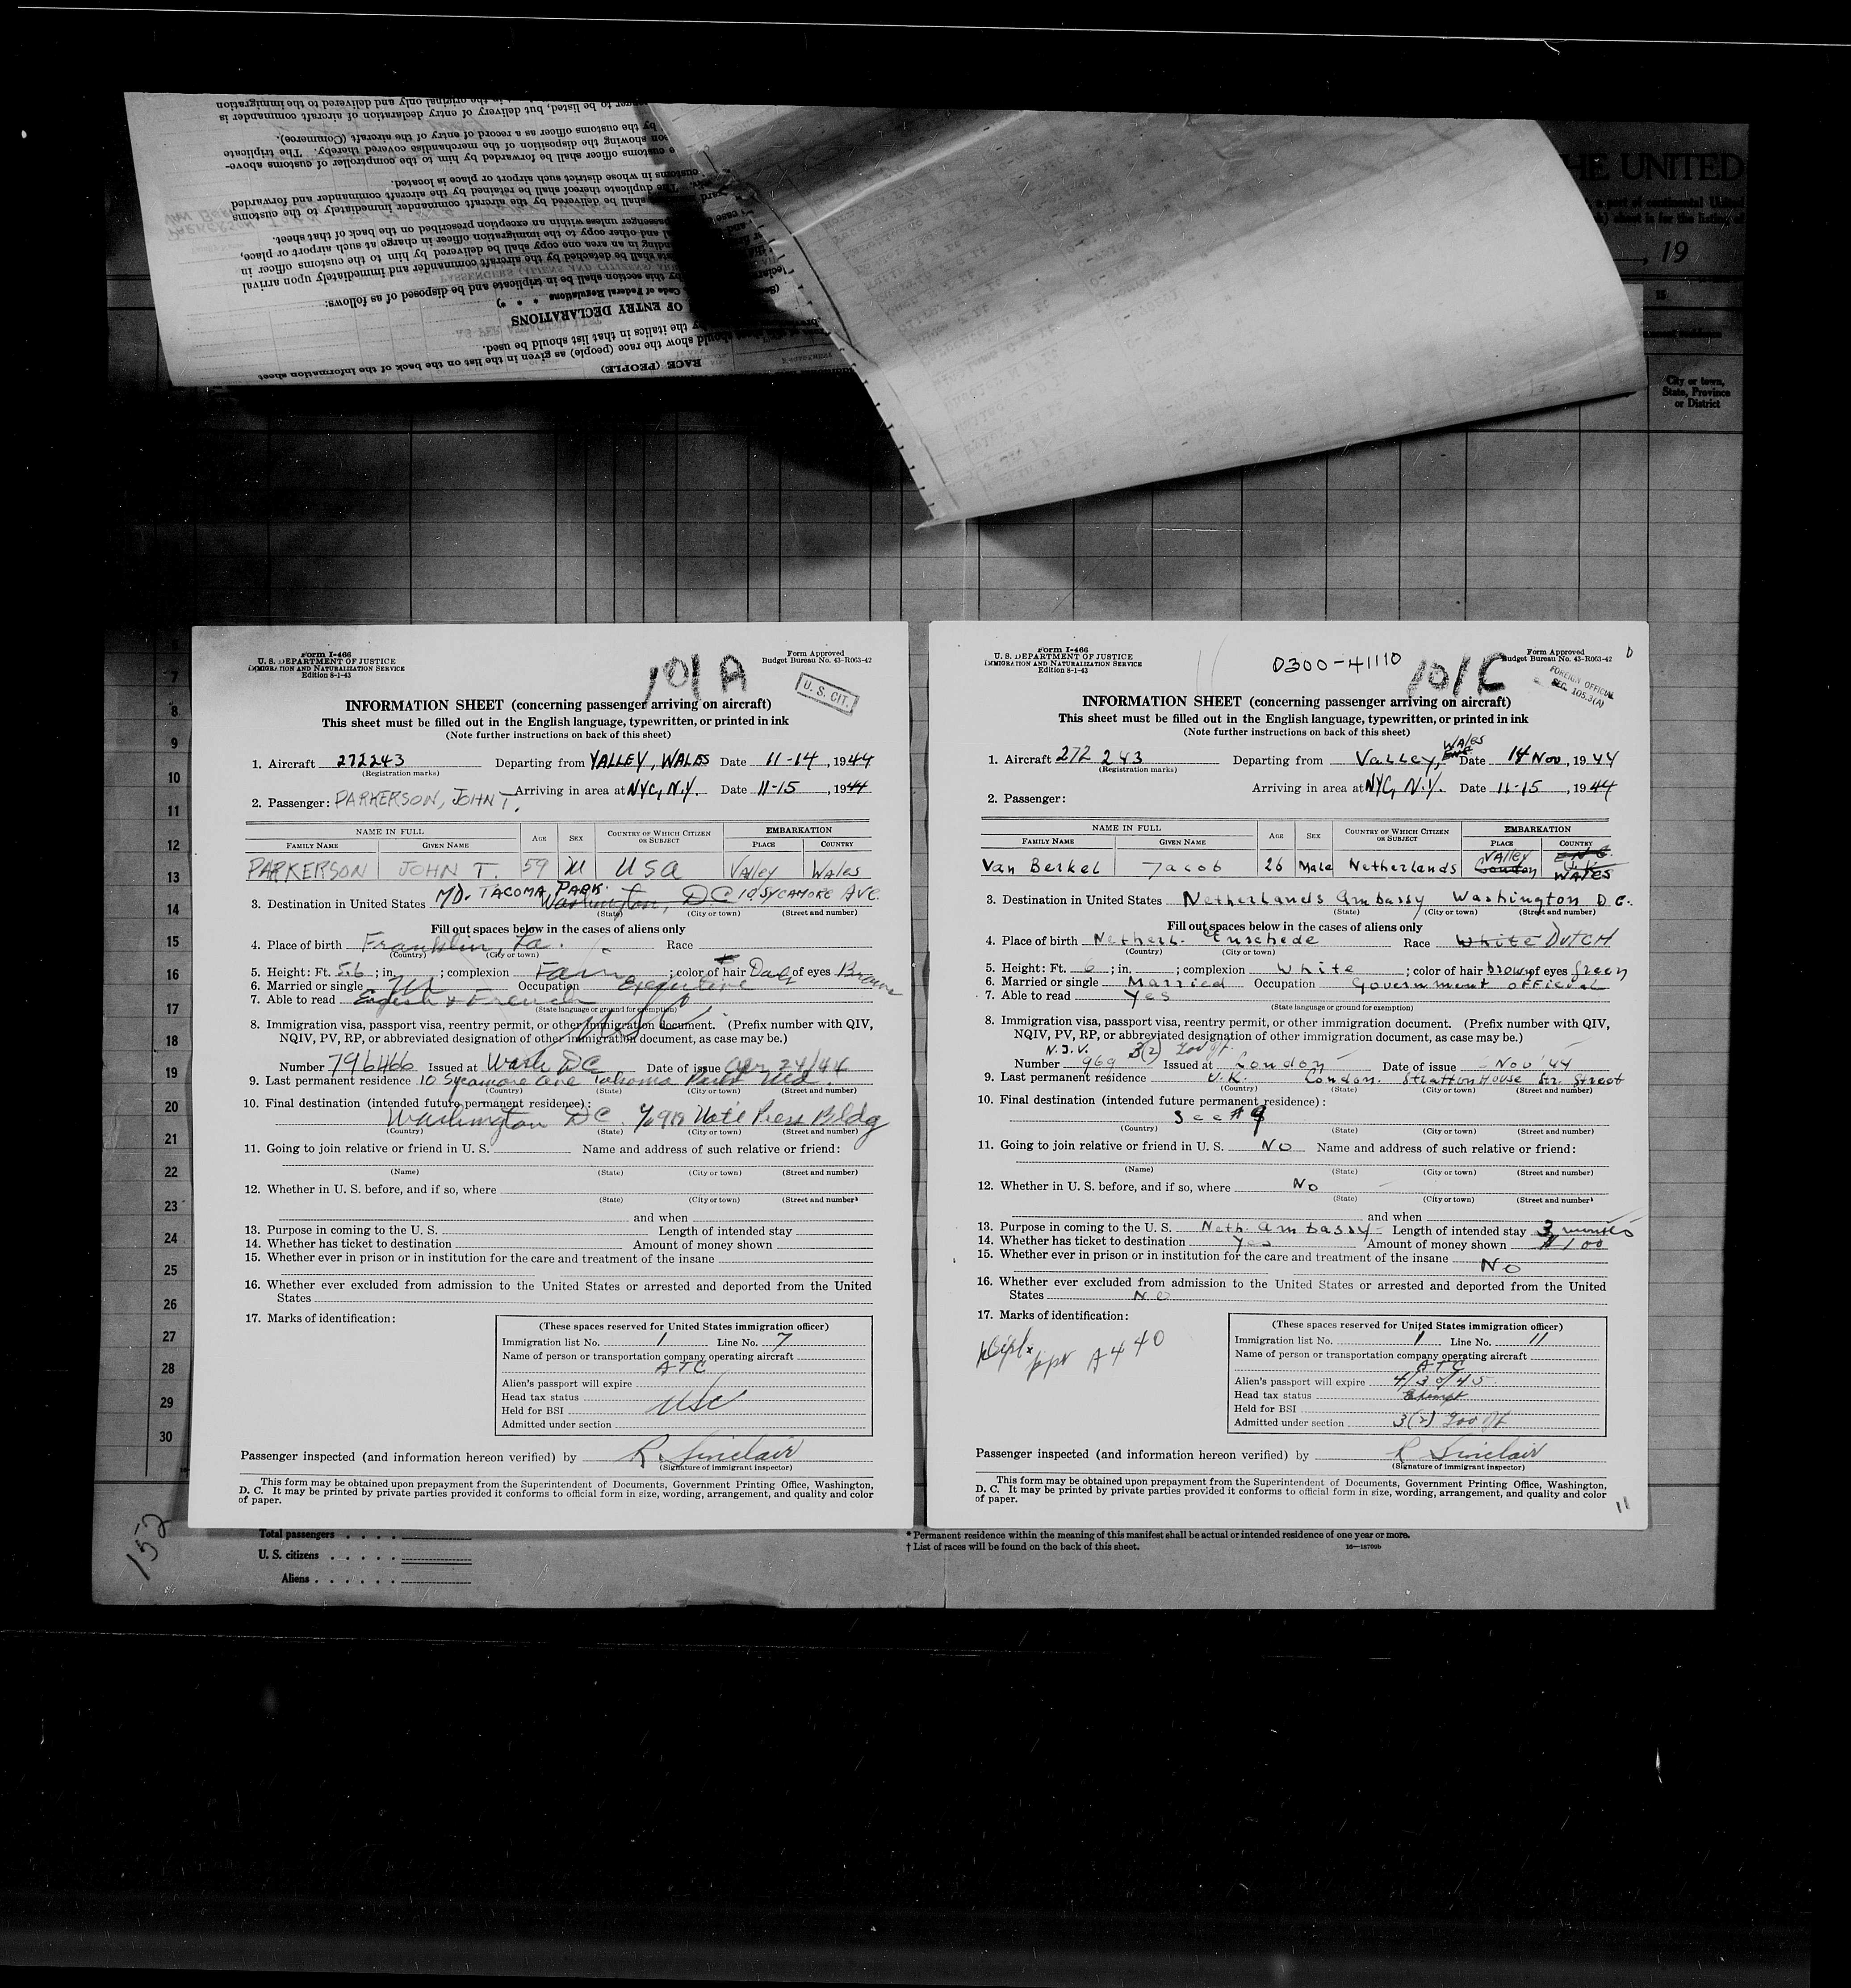 HE UNITED
, 19
City or town,
State, Province
or District
RACE (PEOPLE)
should show the race (people) as given in the list on the back of the information sheet
by the italics in that list should be used.
OF ENTRY DECLARATIONS
Code of Federal Regulations * * *)
by this section shall be in triplicate and be disposed of as follows:
shall be detached by the aircraft commander and immediately upon arrival
landing in an area one copy shall be delivered by him to the customs officer in
and other copy to the immigration officer in charge at such airport or place,
passenger unless within an exception prescribed on the back of that sheet.
shall be delivered by the aircraft commander immediately to the customs
The duplicate thereof shall be retained by the aircraft commander and forwarded
customs in whose district such airport or place is located.
customs officer shall be forwarded by him to the comptroller of customs above-
showing the disposition of the merchandise covered thereby. The triplicate
by the customs officer as a record of entry of the aircraft (Commerce).
to be listed, but delivery of entry declaration of aircraft commander is
the original only and delivered to the immigration
Form I-466
U. S. DEPARTMENT OF JUSTICE
IMMIGRATION AND NATURALIZATION SERVICE
Edition 8-1-43
101A
Form Approved
Budget Bureau No. 43-R063-42
U. S. CIT.
INFORMATION SHEET (concerning passenger arriving on aircraft)
This sheet must be filled out in the English language, typewritten, or printed in ink
(Note further instructions on back of this sheet)
1. Aircraft 272243 Departing from VALLEY, WALES Date 11-14, 1944
(Registration marks)
Arriving in area at NYC, N.Y. Date 11-15, 1944
2. Passenger: PARKERSON, JOHN T.
NAME IN FULL AGE SEX COUNTRY OF WHICH CITIZEN OR SUBJECT EMBARKATION
FAMILY NAME GIVEN NAME PLACE COUNTRY
PARKERSON JOHN T. 59 M USA Valley Wales
MD. TACOMA PARK.
3. Destination in United States Washington, DC 10 SYCAMORE AVE.
(State) (City or town) (Street and number)
Fill out spaces below in the cases of aliens only
4. Place of birth Franklin, La. Race
(Country) (City or town)
5. Height: Ft. 5.6; in. ; complexion Fair; color of hair Dark of eyes Brown
6. Married or single M Occupation Executive
7. Able to read English & French
(State language or ground for exemption)
USC
8. Immigration visa, passport visa, reentry permit, or other immigration document. (Prefix number with QIV,
NQIV, PV, RP, or abbreviated designation of other immigration document, as case may be.)
Number 796466 Issued at Wash DC Date of issue Apr 24/44
9. Last permanent residence 10 Sycamore Ave Takoma Park Md.
(Country) (State) (City or town) (Street and number)
10. Final destination (intended future permanent residence):
Washington DC. c/o 919 Natl Press Bldg
(Country) (State) (City or town) (Street and number)
11. Going to join relative or friend in U. S. Name and address of such relative or friend:
(Name) (State) (City or town) (Street and number)
12. Whether in U. S. before, and if so, where
(State) (City or town) (Street and number)
and when
13. Purpose in coming to the U. S. Length of intended stay
14. Whether has ticket to destination Amount of money shown
15. Whether ever in prison or in institution for the care and treatment of the insane
16. Whether ever excluded from admission to the United States or arrested and deported from the United
States
17. Marks of identification:
(These spaces reserved for United States immigration officer)
Immigration list No. 1 Line No. 7
Name of person or transportation company operating aircraft
ATC
Alien's passport will expire
Head tax status
Held for BSI USC
Admitted under section
Passenger inspected (and information hereon verified) by R Sinclair
(Signature of immigrant inspector)
This form may be obtained upon prepayment from the Superintendent of Documents, Government Printing Office, Washington,
D. C. It may be printed by private parties provided it conforms to official form in size, wording, arrangement, and quality and color
of paper.
Form I-466
U. S. DEPARTMENT OF JUSTICE
IMMIGRATION AND NATURALIZATION SERVICE
Edition 8-1-43
0300-41110
101C
Form Approved
Budget Bureau No. 43-R063-42
FOREIGN OFFICIAL
SEC. 105.3(A)
INFORMATION SHEET (concerning passenger arriving on aircraft)
This sheet must be filled out in the English language, typewritten, or printed in ink
(Note further instructions on back of this sheet)
1. Aircraft 272 243 Departing from Valley, Eng Wales Date 14 Nov, 1944
(Registration marks)
Arriving in area at NYC, N.Y. Date 11-15, 1944
2. Passenger:
NAME IN FULL AGE SEX COUNTRY OF WHICH CITIZEN OR SUBJECT EMBARKATION
FAMILY NAME GIVEN NAME PLACE COUNTRY
Van Berkel Jacob 26 Male Netherlands London Valley U.K. WALES
3. Destination in United States Netherlands Ambassy Washington D.C.
(State) (City or town) (Street and number)
Fill out spaces below in the cases of aliens only
4. Place of birth Netherl. Enschede Race White DUTCH
(Country) (City or town)
5. Height: Ft. 6; in. ; complexion White; color of hair brown of eyes green
6. Married or single Married Occupation Government official
7. Able to read Yes
(State language or ground for exemption)
8. Immigration visa, passport visa, reentry permit, or other immigration document. (Prefix number with QIV,
NQIV, PV, RP, or abbreviated designation of other immigration document, as case may be.)
N.I.V. 3(2) Gov Of.
Number 969 Issued at London Date of issue Nov '44
9. Last permanent residence U.K. London. Stratton House Str. Street
(Country) (State) (City or town) (Street and number)
10. Final destination (intended future permanent residence):
See #9
(Country) (State) (City or town) (Street and number)
11. Going to join relative or friend in U. S. NO Name and address of such relative or friend:
(Name) (State) (City or town) (Street and number)
12. Whether in U. S. before, and if so, where No
(State) (City or town) (Street and number)
and when
13. Purpose in coming to the U. S. Neth. Ambassy Length of intended stay 3 months
14. Whether has ticket to destination Yes Amount of money shown $100
15. Whether ever in prison or in institution for the care and treatment of the insane NO
16. Whether ever excluded from admission to the United States or arrested and deported from the United
States NO
17. Marks of identification:
Dipl. ppt A440
(These spaces reserved for United States immigration officer)
Immigration list No. 1 Line No. 11
Name of person or transportation company operating aircraft
ATC
Alien's passport will expire 4/30/45
Head tax status Exempt
Held for BSI
Admitted under section 3(2) Gov Of
Passenger inspected (and information hereon verified) by R Sinclair
(Signature of immigrant inspector)
This form may be obtained upon prepayment from the Superintendent of Documents, Government Printing Office, Washington,
D. C. It may be printed by private parties provided it conforms to official form in size, wording, arrangement, and quality and color
of paper.
11
7
8
9
10
11
12
13
14
15
16
17
18
19
20
21
22
23
24
25
26
27
28
29
30
152
Total passengers . . . .
U. S. citizens . . . . .
Aliens . . . . . .
* Permanent residence within the meaning of this manifest shall be actual or intended residence of one year or more.
† List of races will be found on the back of this sheet.
16—18709b